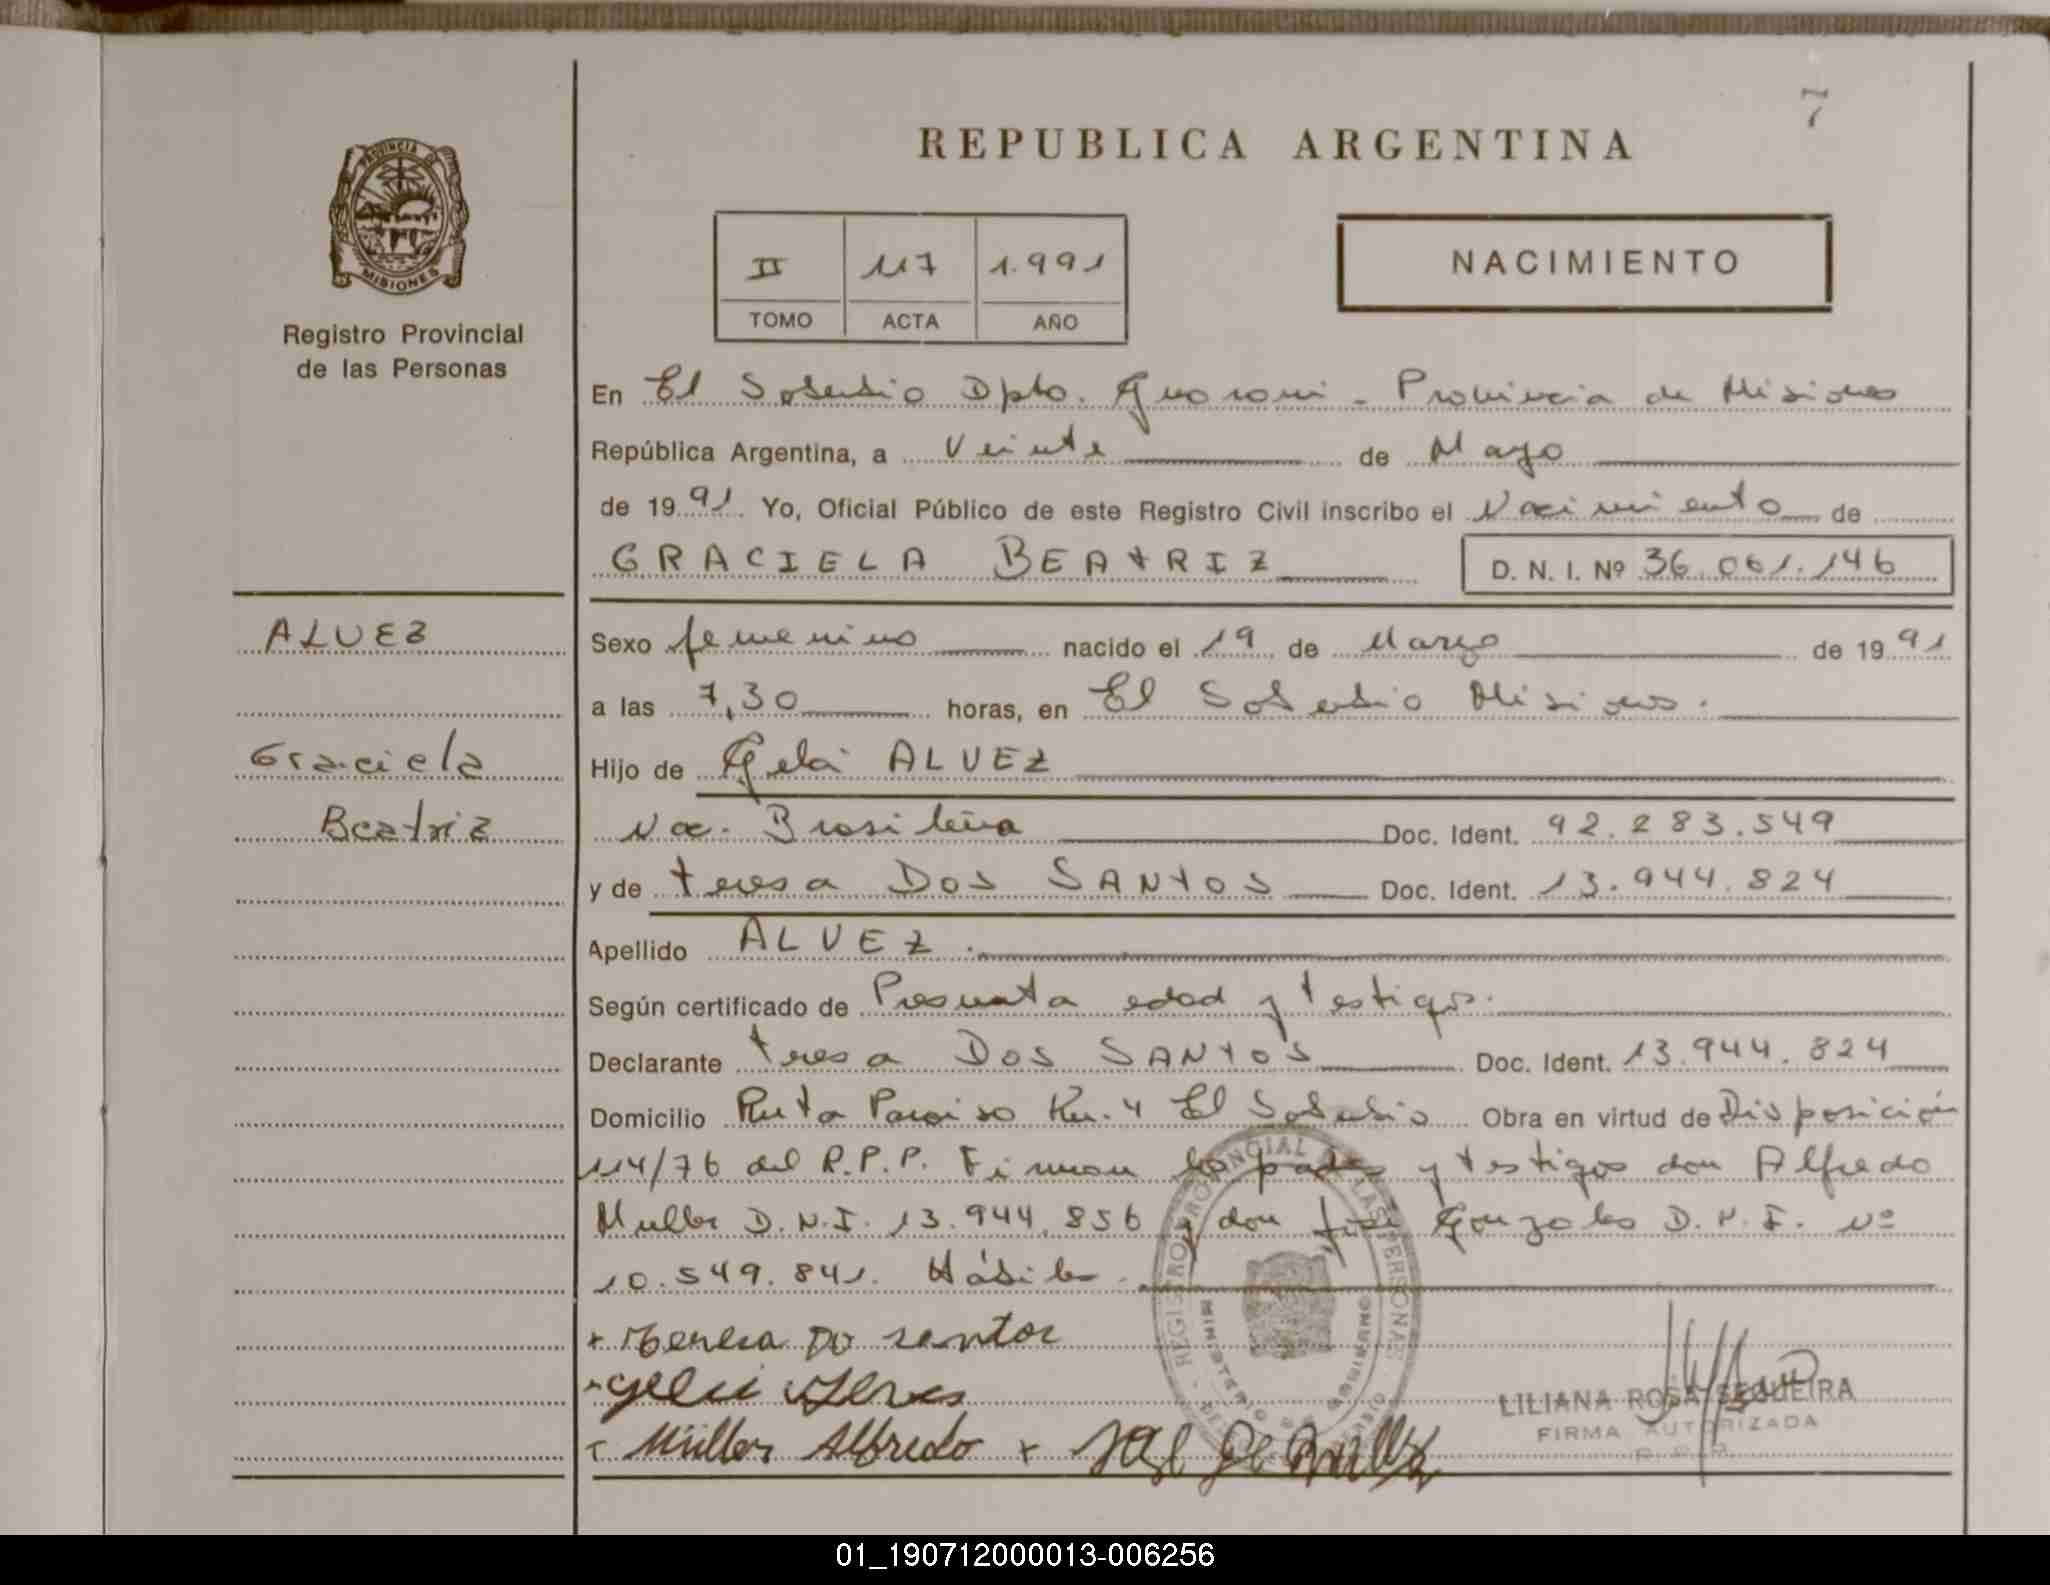 7
REPUBLICA ARGENTINA
PROVINCIA DE
MISIONES
Registro Provincial
de las Personas
II 117 1.991
TOMO ACTA AÑO
NACIMIENTO
En El Soberbio Dpto. Guarani - Provincia de Misiones
República Argentina, a Veinte de Mayo
de 1991. Yo, Oficial Público de este Registro Civil inscribo el Nacimiento de
GRACIELA BEATRIZ D. N. I. Nº 36.061.146
ALVEZ
Graciela
Beatriz
Sexo femenino nacido el 19 de Marzo de 1991
a las 7,30 horas, en El Soberbio Misiones.
Hijo de ALVEZ
Nac. Brasileña Doc. Ident. 92.283.549
y de teresa DOS SANTOS Doc. Ident. 13.944.824
Apellido ALVEZ.
Según certificado de Presunta edad y testigos.
Declarante teresa DOS SANTOS Doc. Ident. 13.944.824
Domicilio Ruta Paraiso Km. 4 El Soberbio Obra en virtud de Disposición
114/76 del R.P.P. Firman los padres y testigos don Alfredo
Muller D.N.I. 13.944.856 y don José Gonzales D.N.I. Nº
10.549.841. Hábiles.
REGISTRO PROVINCIAL DE LAS PERSONAS
MINISTERIO DE GOBIERNO
LILIANA ROSA SEQUEIRA
FIRMA AUTORIZADA
R.P.P.
Müller Alfredo
01_190712000013-006256